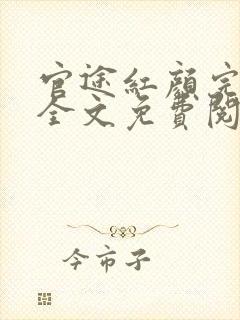 官途红颜完
全文免费阅
今市子